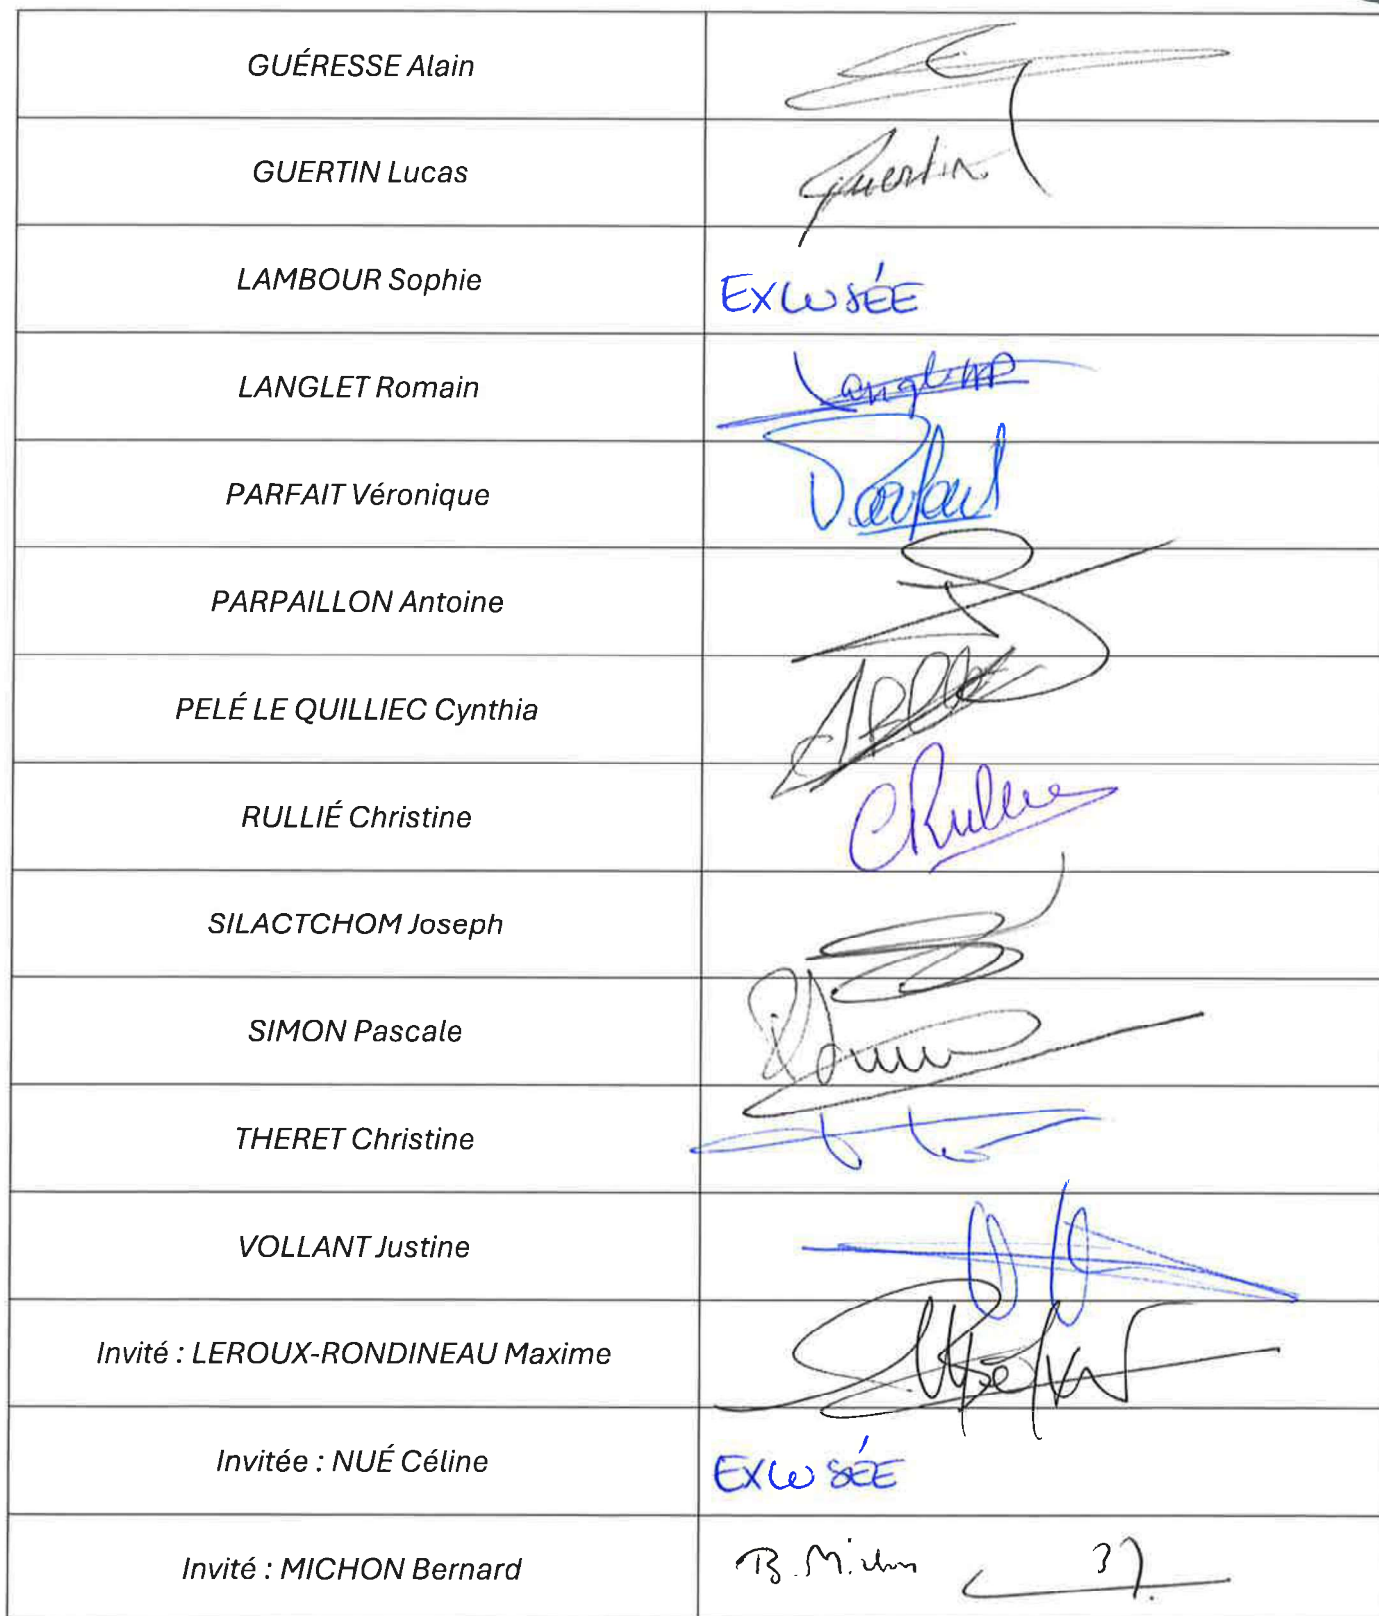 GUÉRESSE Alain
GUERTIN Lucas
Guertin
LAMBOUR Sophie
EXCUSÉE
LANGLET Romain
PARFAIT Véronique
Parfait
PARPAILLON Antoine
PELÉ LE QUILLIEC Cynthia
RULLIÉ Christine
CRullie
SILACTCHOM Joseph
SIMON Pascale
THERET Christine
VOLLANT Justine
Invité : LEROUX-RONDINEAU Maxime
Invitée : NUÉ Céline
EXCUSÉE
Invité : MICHON Bernard
B. Michon